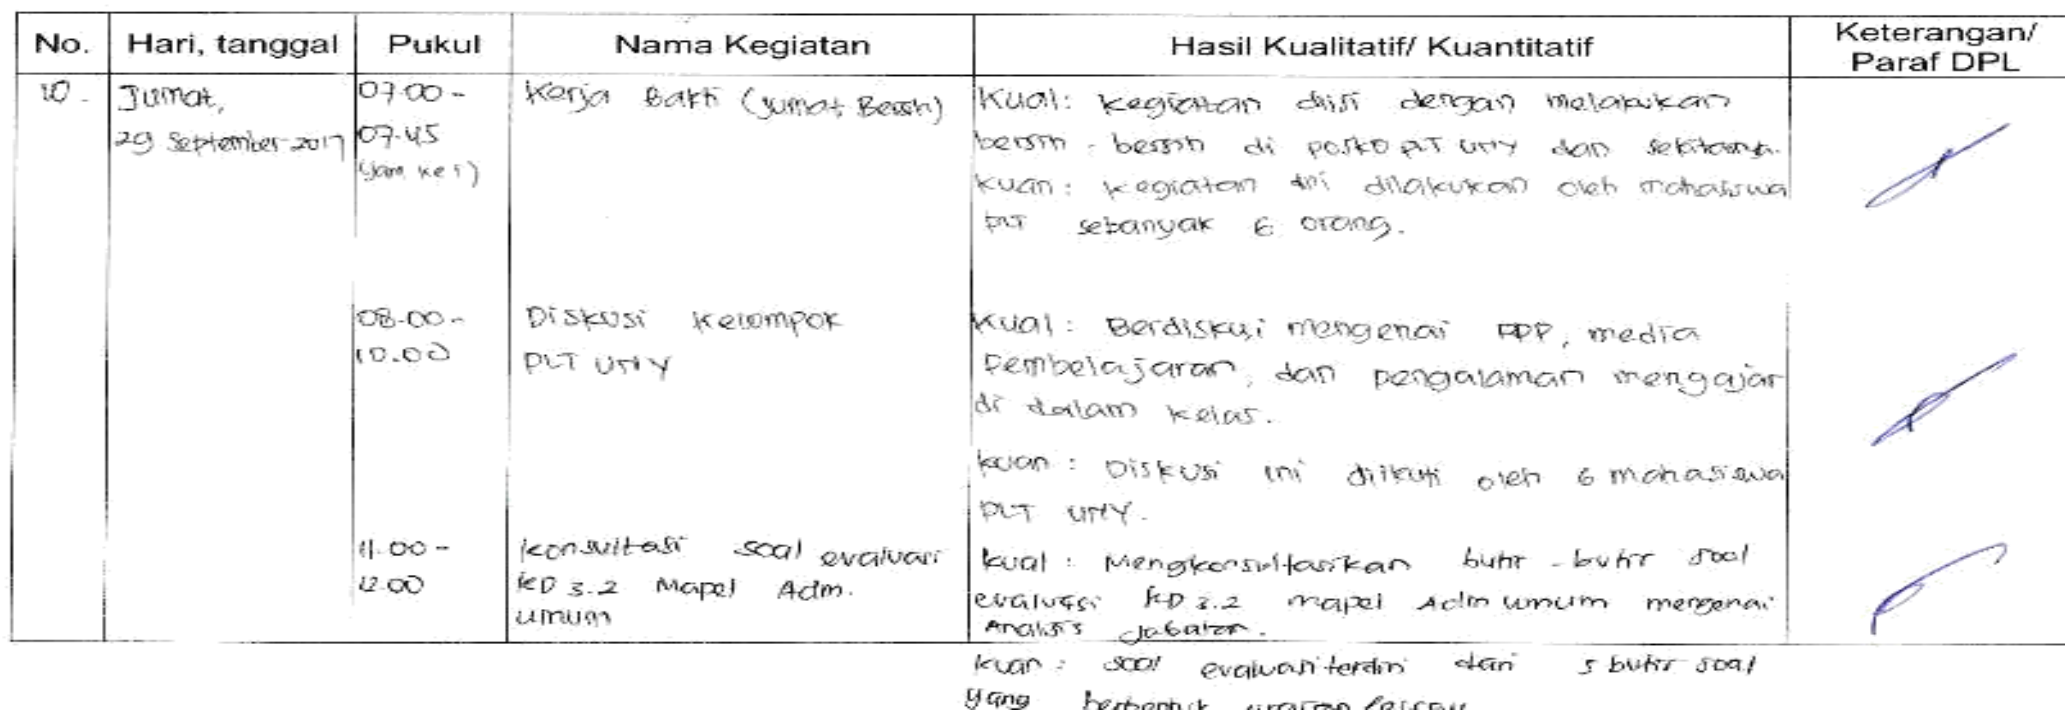 No. Hari, tanggal Pukul Nama Kegiatan Hasil Kualitatif/ Kuantitatif Keterangan/
Paraf DPL
10. Jumat, 07.00 - Kerja Bakti (Jumat Bersih) Kual: Kegiatan diisi dengan melakukan
29 September 2017 07.45 bersih - bersih di posko PLT UNY dan sekitarnya.
(Jam ke 1) Kuan: Kegiatan ini dilakukan oleh mahasiswa
PLT sebanyak 6 orang.
08.00 - Diskusi Kelompok Kual: Berdiskusi mengenai RPP, media
10.00 PLT UNY Pembelajaran, dan pengalaman mengajar
di dalam kelas.
kuan: Diskusi ini diikuti oleh 6 mahasiswa
PLT UNY.
11.00 - konsultasi soal evaluasi kual: Mengkonsultasikan butir - butir soal
12.00 KD 3.2 Mapel Adm. evaluasi KD 3.2 mapel Adm umum mengenai
umum Analisis Jabatan.
kuan: soal evaluasi terdiri dari 5 butir soal
yang berbentuk uraian